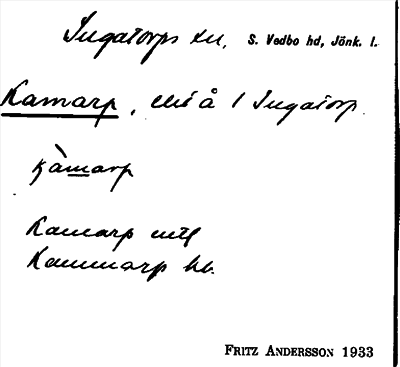 Ingatorps sn, S. Vedbo hd, Jönk. l.
Kamarp, å 1 Ingatorp
kàmarp
Kamarp
Kammarp hb.
FRITZ ANDERSSON 1933